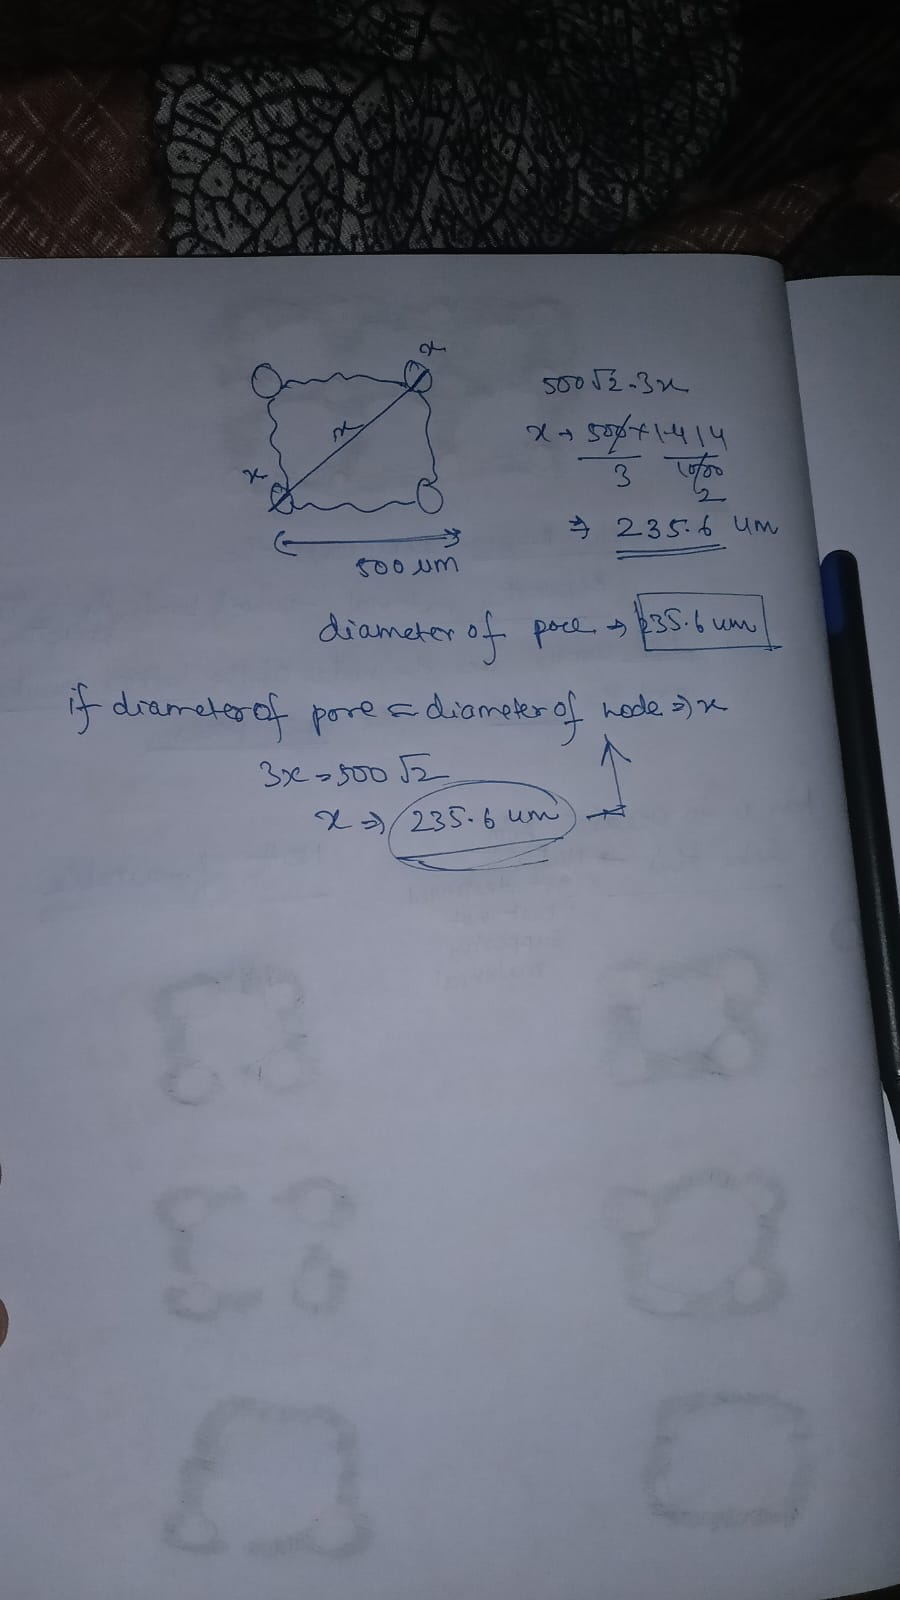 x
x
x
500 um
500√2 = 3x
x → 500 × 1.414
3 1000
2
⇒ 235.6 um
diameter of pore ⇒ 235.6 um
if diameter of pore = diameter of node ⇒ x
3x = 500 √2
x ⇒ 235.6 um